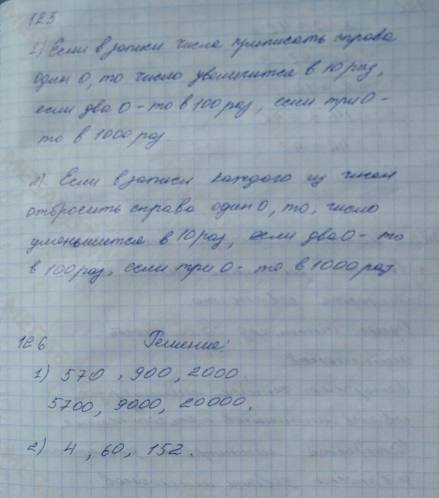 125
1) Если в записи числа приписать справа
один 0, то число увеличится в 10 раз,
если два 0 - то в 100 раз, если три 0 -
то в 1000 раз.
2) Если в записи каждого из чисел
отбросить справа один 0, то, число
уменьшится в 10 раз, если два 0 - то
в 100 раз, если три 0 - то в 1000 раз.
126 Решение:
1) 570, 900, 2000
5700, 9000, 20000.
2) 4, 60, 152.